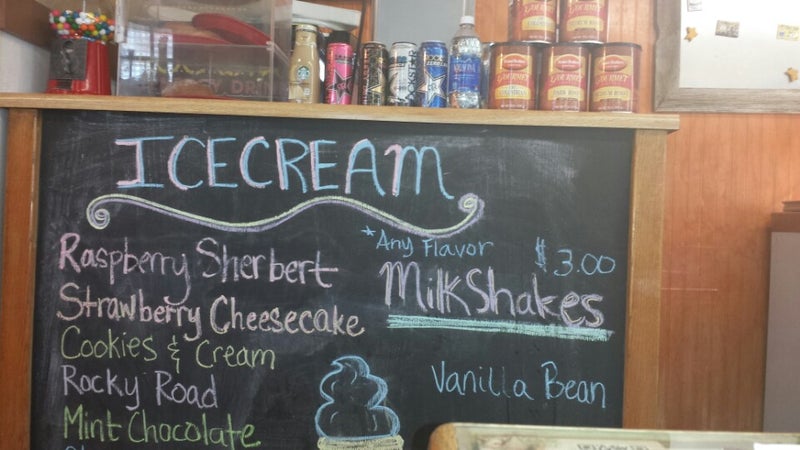 ICECREAM
*Any Flavor
$3.00
MilkShakes
Raspberry Sherbert
Strawberry Cheesecake
Cookies & Cream
Rocky Road
Mint Chocolate
Vanilla Bean
ROCKSTAR
GOURMET
GOURMET
GOURMET